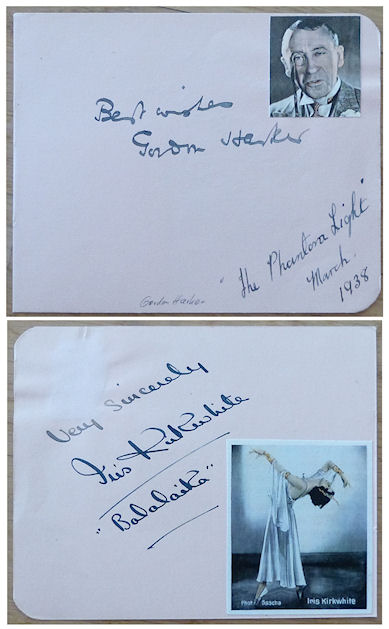 Best wishes
Gordon Harker
"The Phantom Light"
March.
1938
Gordon Harker
Very sincerely
Iris Kirkwhite
"Balalaika"
Phot Sascha Iris Kirkwhite